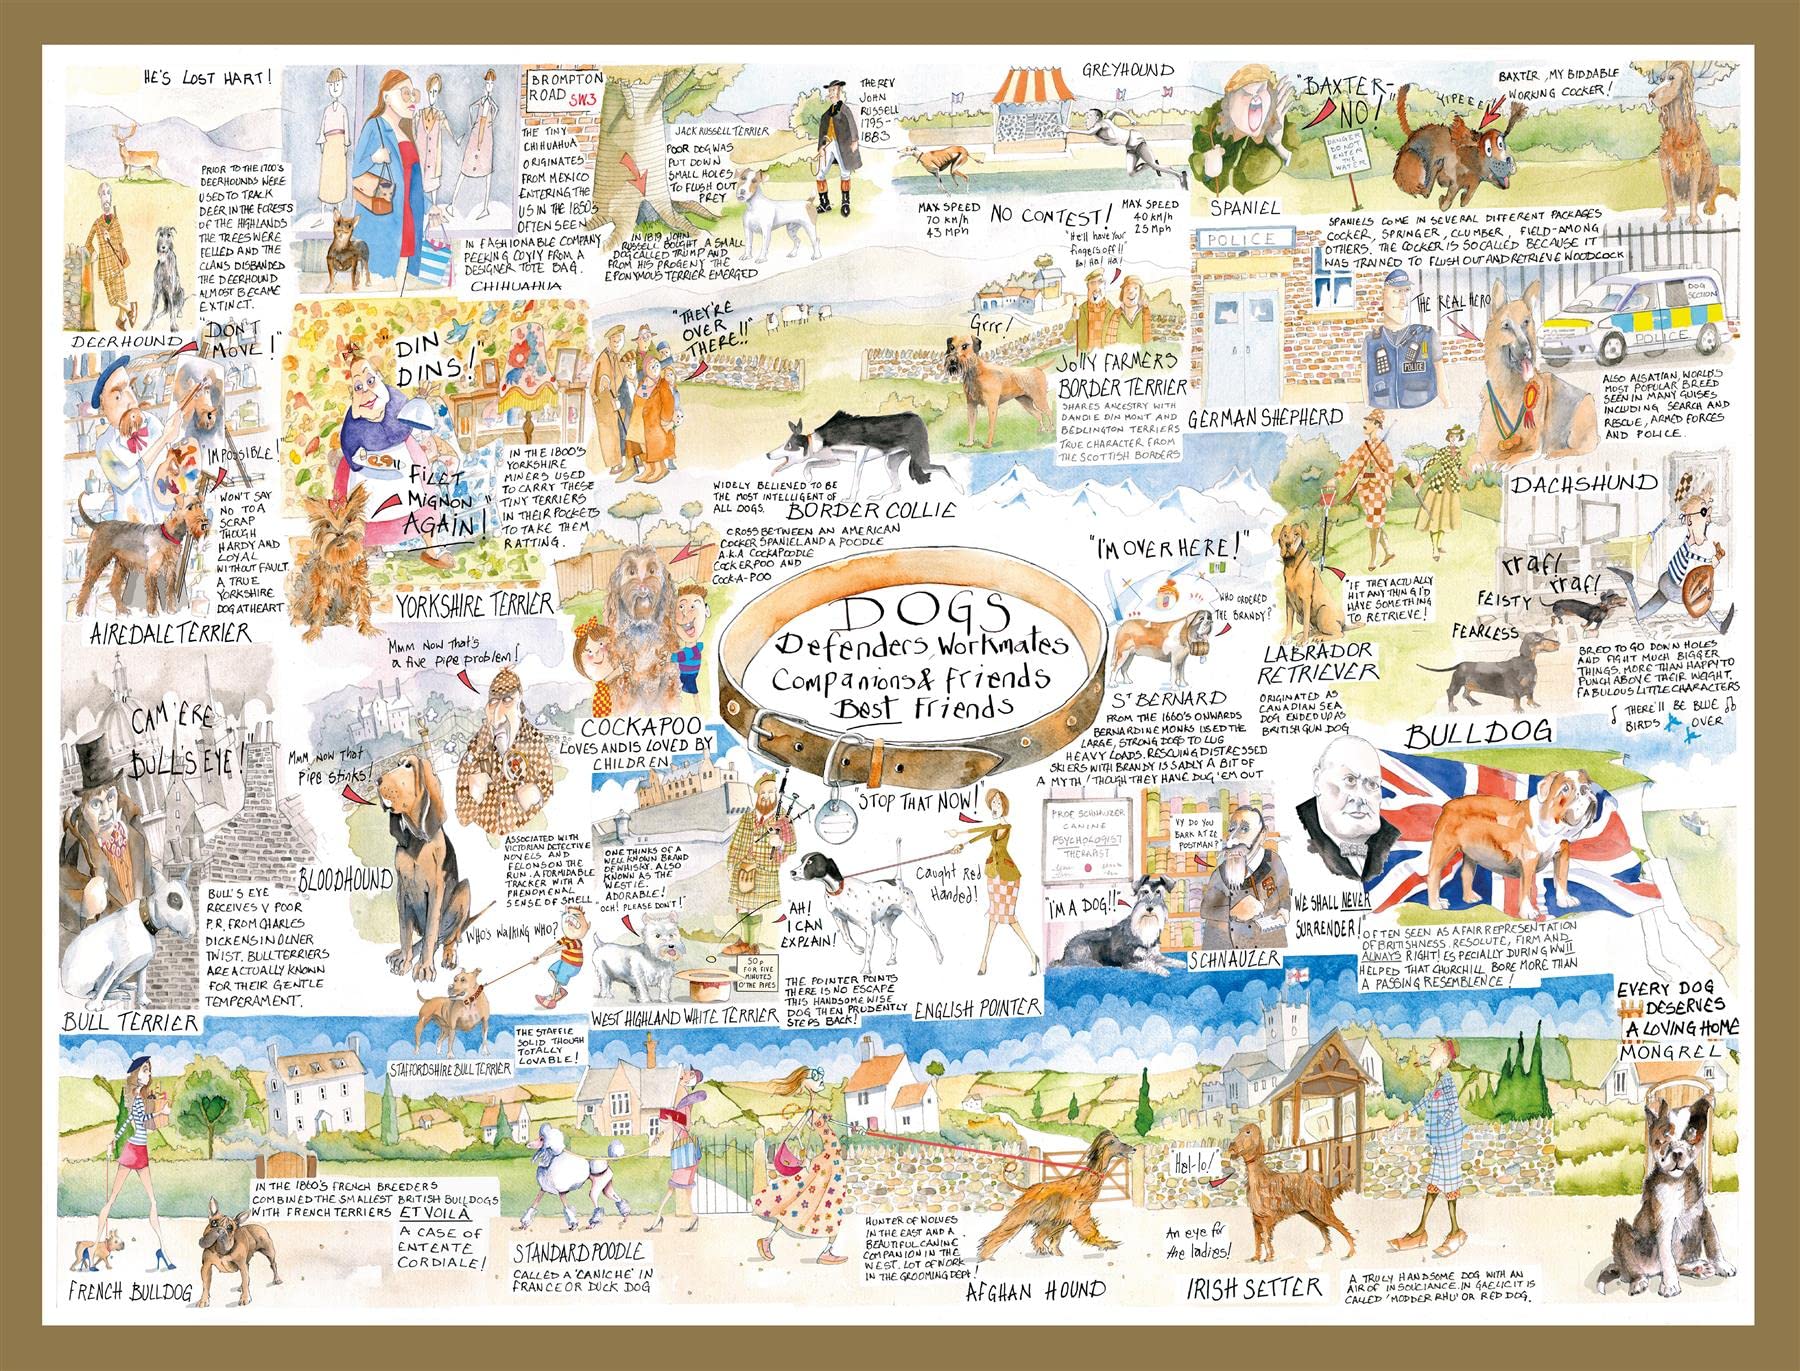 HE'S LOST HART!
PRIOR TO THE 1700'S
DEERHOUNDS WERE
USED TO TRACK
DEER IN THE FORESTS
OF THE HIGHLANDS
THE TREES WERE
FELLED AND THE
CLANS DISBANDED
THE DEERHOUND
ALMOST BECAME
EXTINCT.
DEERHOUND
BROMPTON
ROAD SW3
THE TINY
CHIHUAHUA
ORIGINATES
FROM MEXICO
ENTERING THE
US IN THE 1850'S
OFTEN SEEN
IN FASHIONABLE COMPANY
PEEKING COYLY FROM A
DESIGNER TOTE BAG.
CHIHUAHUA
JACK RUSSELL TERRIER
POOR DOG WAS
PUT DOWN
SMALL HOLES
TO FLUSH OUT
PREY
THE REV
JOHN
RUSSELL
1795-
1883
IN 1819 JOHN
RUSSELL BOUGHT A SMALL
DOG CALLED TRUMP AND
FROM HIS PROGENY THE
EPONYMOUS TERRIER EMERGED
GREYHOUND
MAX SPEED
70 KM/H
43 MPH
NO CONTEST!
MAX SPEED
40 KM/H
25 MPH
"BAXTER-
NO!"
DANGER
DO NOT
ENTER
THE
WATER
YIPEEE!
BAXTER, MY BIDDABLE
WORKING COCKER!
SPANIEL
SPANIELS COME IN SEVERAL DIFFERENT PACKAGES
COCKER, SPRINGER, CLUMBER, FIELD-AMONG
OTHERS. THE COCKER IS SO CALLED BECAUSE IT
WAS TRAINED TO FLUSH OUT AND RETRIEVE WOODCOCK
"DON'T
MOVE!"
IMPOSSIBLE!
WON'T SAY
NO TO A
SCRAP
THOUGH
HARDY AND
LOYAL
WITHOUT FAULT.
A TRUE
YORKSHIRE
DOG AT HEART
AIREDALE TERRIER
"DIN
DINS!"
"FILET
MIGNON
AGAIN!"
IN THE 1800'S
YORKSHIRE
MINERS USED
TO CARRY THESE
TINY TERRIERS
IN THEIR POCKETS
TO TAKE THEM
RATTING.
YORKSHIRE TERRIER
"THEY'RE
OVER
THERE!!"
WIDELY BELIEVED TO BE
THE MOST INTELLIGENT OF
ALL DOGS.
BORDER COLLIE
"He'll have your
fingers off!!"
Ha! Ha! Ha!
Grrr!
JOLLY FARMERS
BORDER TERRIER
SHARES ANCESTRY WITH
DANDIE DINMONT AND
BEDLINGTON TERRIERS
TRUE CHARACTER FROM
THE SCOTTISH BORDERS
POLICE
THE REAL HERO
POLICE
DOG
SECTION
POLICE
GERMAN SHEPHERD
ALSO ALSATIAN, WORLD'S
MOST POPULAR BREED
SEEN IN MANY GUISES
INCLUDING SEARCH AND
RESCUE, ARMED FORCES
AND POLICE.
CROSS BETWEEN AN AMERICAN
COCKER SPANIEL AND A POODLE
A.K.A COCKAPOODLE
COCKERPOO AND
COCK-A-POO
COCKAPOO
LOVES AND IS LOVED BY
CHILDREN
DOGS
Defenders, Workmates
Companions & Friends
Best Friends
"I'M OVER HERE!"
"WHO ORDERED
THE BRANDY?"
ST BERNARD
FROM THE 1660'S ONWARDS
BERNARDINE MONKS USED THE
LARGE, STRONG DOGS TO LUG
HEAVY LOADS. RESCUING DISTRESSED
SKIERS WITH BRANDY IS SADLY A BIT OF
A MYTH! THOUGH THEY HAVE DUG 'EM OUT
"IF THEY ACTUALLY
HIT ANYTHING I'D
HAVE SOMETHING
TO RETRIEVE!
LABRADOR
RETRIEVER
ORIGINATED AS
CANADIAN SEA
DOG ENDED UP AS
BRITISH GUN DOG
DACHSHUND
rraf!
rraf!
FEISTY
FEARLESS
BRED TO GO DOWN HOLES
AND FIGHT MUCH BIGGER
THINGS. MORE THAN HAPPY TO
PUNCH ABOVE THEIR WEIGHT.
FABULOUS LITTLE CHARACTERS
THERE'LL BE BLUE
BIRDS OVER
"CAM'ERE
BULLS EYE!"
BULL'S EYE
RECEIVES V POOR
P.R. FROM CHARLES
DICKENS IN OLIVER
TWIST. BULL TERRIERS
ARE ACTUALLY KNOWN
FOR THEIR GENTLE
TEMPERAMENT.
BULL TERRIER
"Mmm Now that's
a five pipe problem!
Mmm now that
Pipe stinks!
BLOODHOUND
ASSOCIATED WITH
VICTORIAN DETECTIVE
NOVELS AND
FELONS ON THE
RUN. A FORMIDABLE
TRACKER WITH A
PHENOMENAL
SENSE OF SMELL
WHO'S WALKING WHO?
STAFFORDSHIRE BULL TERRIER
THE STAFFIE
SOLID THOUGH
TOTALLY
LOVABLE!
ONE THINKS OF A
WELL KNOWN BRAND
OF WHISKY. ALSO
KNOWN AS THE
WESTIE.
ADORABLE!
"OCH! PLEASE DON'T!"
50p
FOR FIVE
MINUTES
O'THE PIPES
WEST HIGHLAND WHITE TERRIER
"STOP THAT NOW!"
Caught Red
Handed!
"AH!
I CAN
EXPLAIN!
THE POINTER POINTS
THERE IS NO ESCAPE
THIS HANDSOME WISE
DOG THEN PRUDENTLY
STEPS BACK!
ENGLISH POINTER
PROF SCHNAUZER
CANINE
PSYCHOLOGIST
THERAPIST
VY DO YOU
BARK AT ZE
POSTMAN?
"I'M A DOG!!"
SCHNAUZER
BULLDOG
"WE SHALL NEVER
SURRENDER!"
OFTEN SEEN AS A FAIR REPRESENTATION
OF BRITISHNESS. RESOLUTE, FIRM AND
ALWAYS RIGHT! ESPECIALLY DURING WWII
HELPED THAT CHURCHILL BORE MORE THAN
A PASSING RESEMBLENCE!
EVERY DOG
DESERVES
A LOVING HOME
MONGREL
FRENCH BULLDOG
IN THE 1860'S FRENCH BREEDERS
COMBINED THE SMALLEST BRITISH BULLDOGS
WITH FRENCH TERRIERS ET VOILA
A CASE OF
ENTENTE
CORDIALE!
STANDARD POODLE
CALLED A 'CANICHE' IN
FRANCE OR DUCK DOG
HUNTER OF WOLVES
IN THE EAST AND A
BEAUTIFUL CANINE
COMPANION IN THE
WEST. LOT OF WORK
IN THE GROOMING DEPT!
AFGHAN HOUND
Hal-lo!
An eye for
the ladies!
IRISH SETTER
A TRULY HANDSOME DOG WITH AN
AIR OF INSOUCIANCE. IN GAELIC IT IS
CALLED 'MODDER RHU' OR RED DOG.